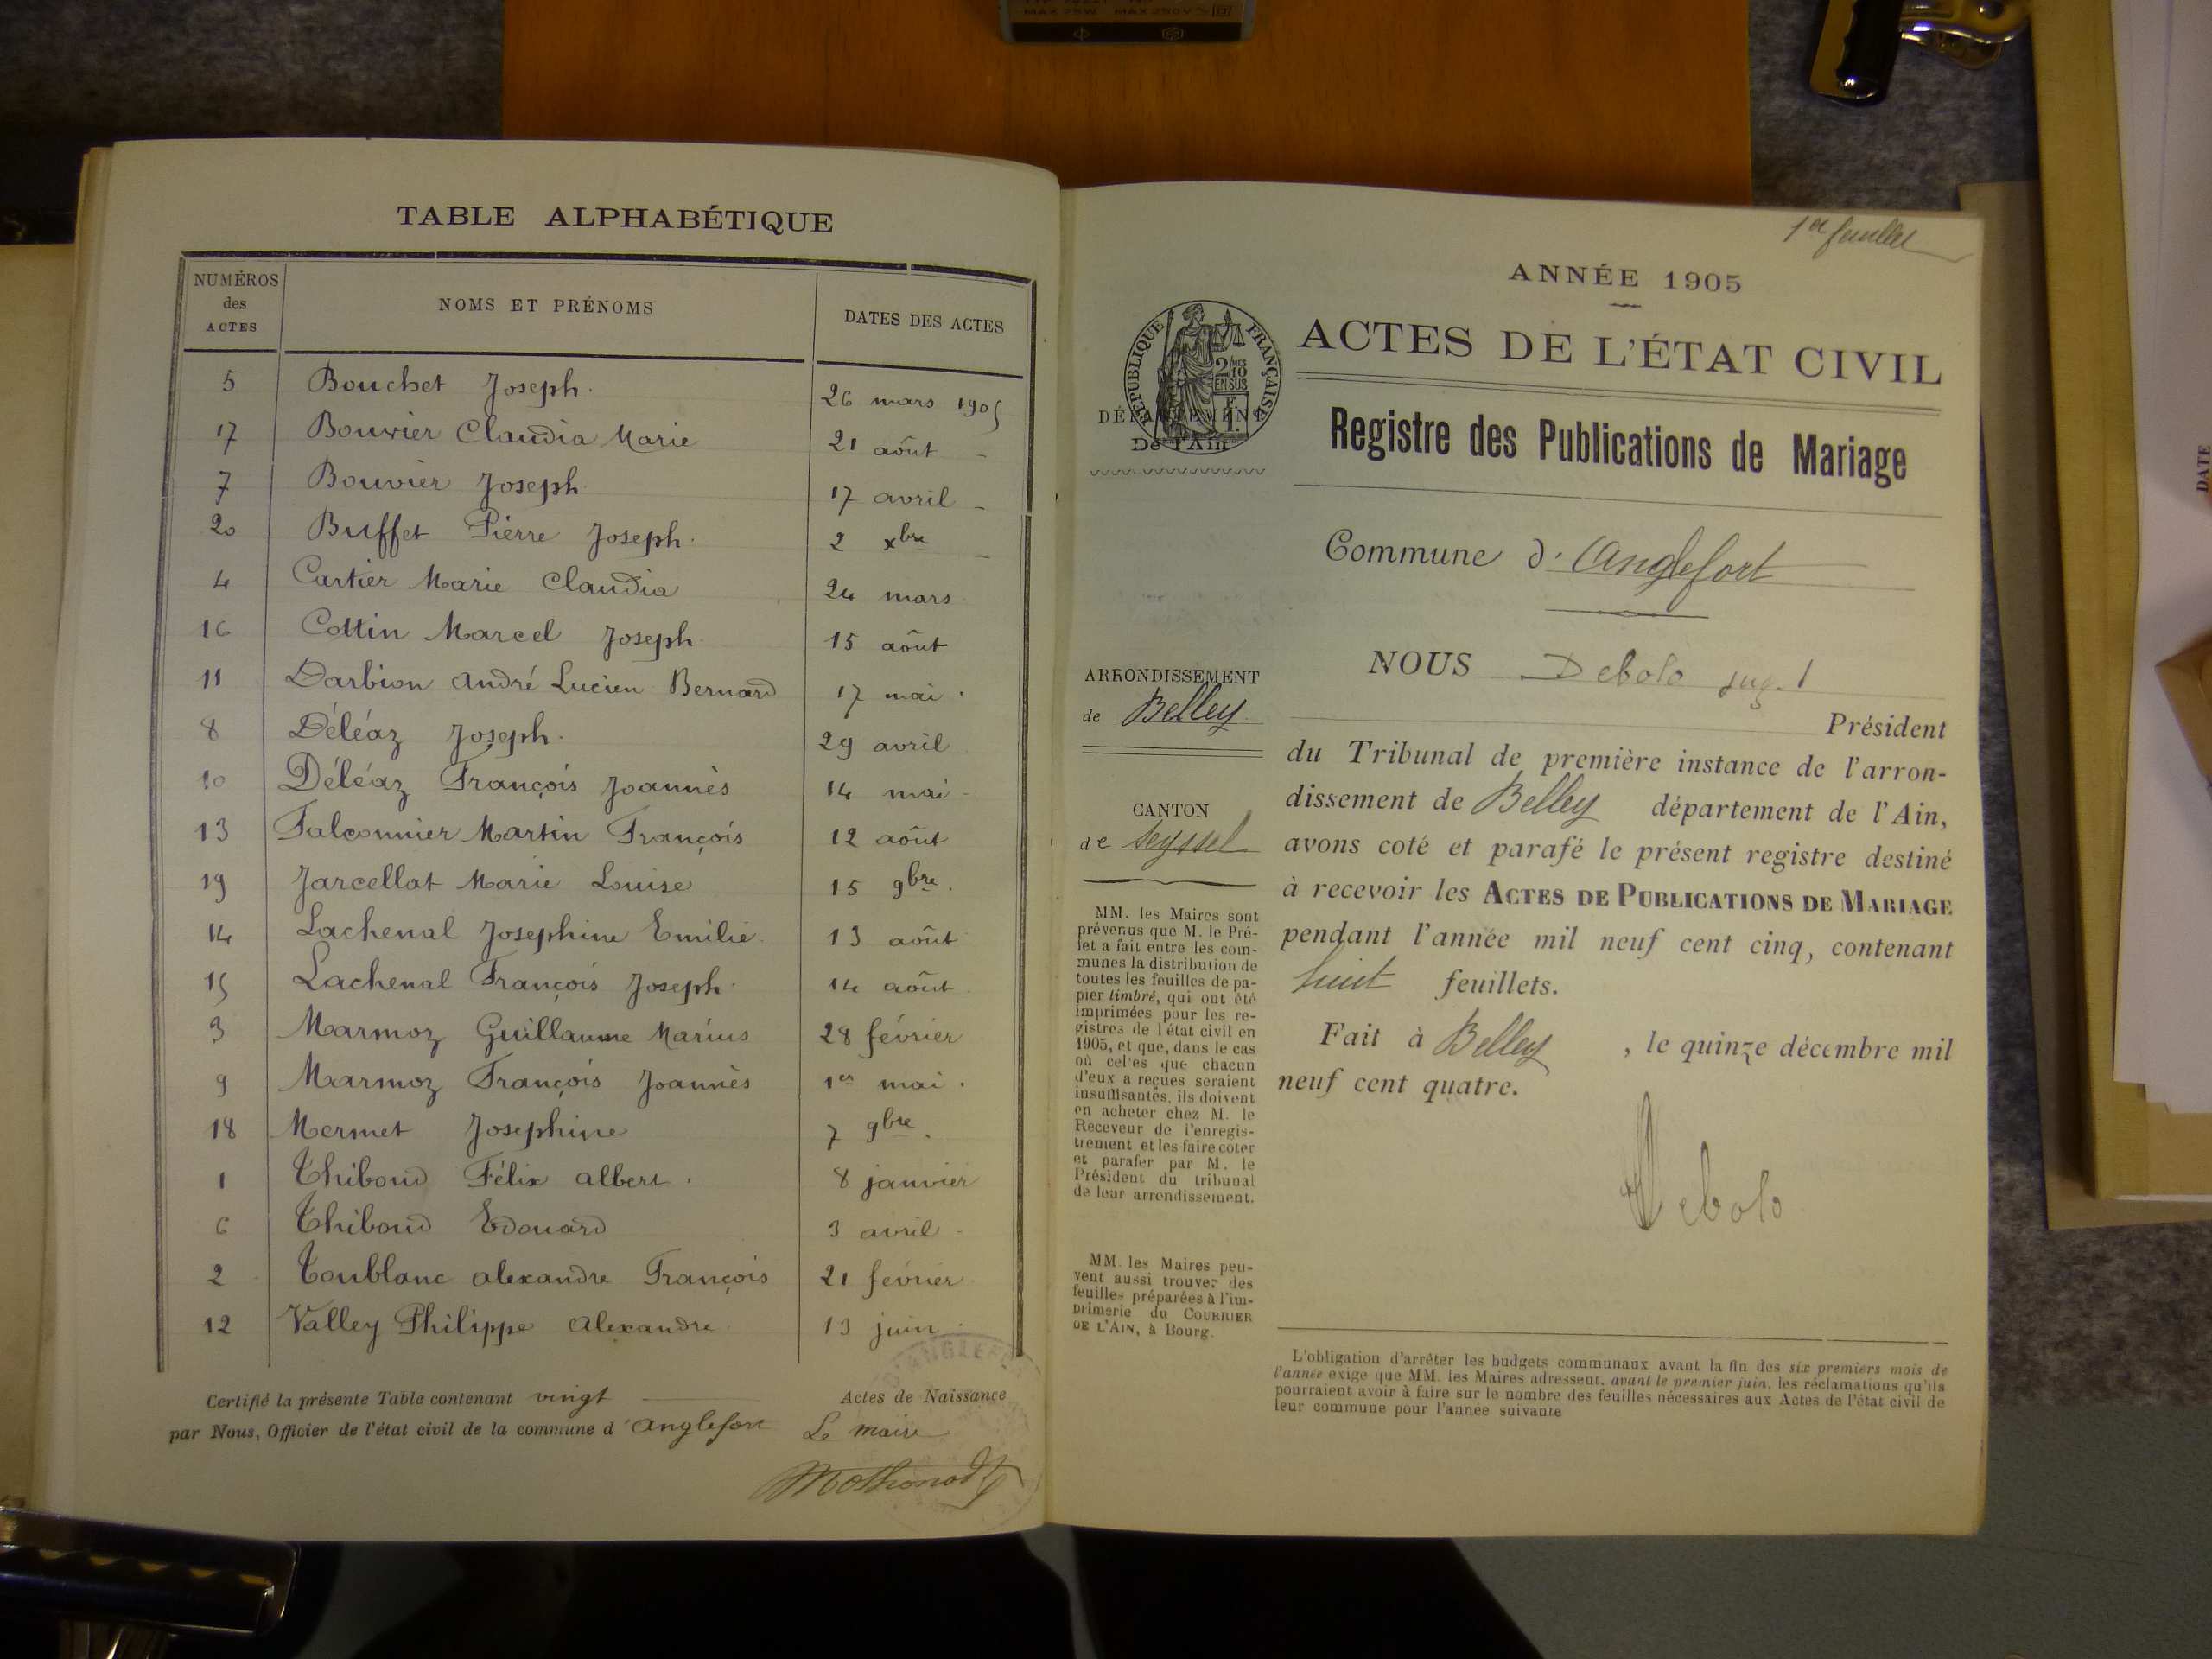 MAX 75W MAX 250V
TABLE ALPHABÉTIQUE
NUMÉROS des ACTES NOMS ET PRÉNOMS DATES DES ACTES
5 Bouchet Joseph. 26 mars 1905
17 Bouvier Claudia Marie 21 août -
7 Bouvier Joseph 17 avril -
20 Buffet Pierre Joseph. 2 xbre -
4 Cartier Marie Claudia 24 mars
16 Cottin Marcel Joseph 15 août
11 Darbion André Lucien Bernard 17 mai.
8 Déléaz Joseph. 29 avril
10 Déléaz François Joannès 14 mai -
13 Falconnier Martin François 12 août
19 Jarcellat Marie Louise 15 9bre.
14 Lachenal Josephine Emilie. 13 août
15 Lachenal François Joseph. 14 août
3 Marmoz Guillaume Marius 28 février
9 Marmoz François Joannès 1er mai.
18 Mermet Josephine 7 9bre.
1 Thiboud Félix Albert. 8 janvier
6 Thiboud Edouard 3 avril -
2 Toublanc Alexandre François 21 février
12 Valley Philippe Alexandre 13 juin.
Certifié la présente Table contenant vingt Actes de Naissance
par Nous, Officier de l'état civil de la commune d'Anglefort Le maire
1er feuillet
ANNÉE 1905
ACTES DE L'ÉTAT CIVIL
Registre des Publications de Mariage
RÉPUBLIQUE FRANÇAISE
DÉPARTEMENT
De l'Ain
Commune d'Anglefort
NOUS Debolo
Président
du Tribunal de première instance de l'arron-
dissement de Belley département de l'Ain,
avons coté et parafé le présent registre destiné
à recevoir les ACTES DE PUBLICATIONS DE MARIAGE
pendant l'année mil neuf cent cinq, contenant
huit feuillets.
Fait à Belley, le quinze décembre mil
neuf cent quatre.
Debolo
ARRONDISSEMENT
de Belley
CANTON
de Seyssel
MM. les Maires sont
prévenus que M. le Pré-
fet a fait entre les com-
munes la distribution de
toutes les feuilles de pa-
pier timbré, qui ont été
imprimées pour les re-
gistres de l'état civil en
1905, et que, dans le cas
où celles que chacun
d'eux a reçues seraient
insuffisantes, ils doivent
en acheter chez M. le
Receveur de l'enregis-
trement et les faire coter
et parafer par M. le
Président du tribunal
de leur arrondissement.
MM. les Maires peu-
vent aussi trouver des
feuilles préparées à l'im-
primerie du COURRIER
DE L'AIN, à Bourg.
L'obligation d'arrêter les budgets communaux avant la fin des six premiers mois de
l'année exige que MM. les Maires adressent, avant le premier juin, les réclamations qu'ils
pourraient avoir à faire sur le nombre des feuilles nécessaires aux Actes de l'état civil de
leur commune pour l'année suivante
DATE